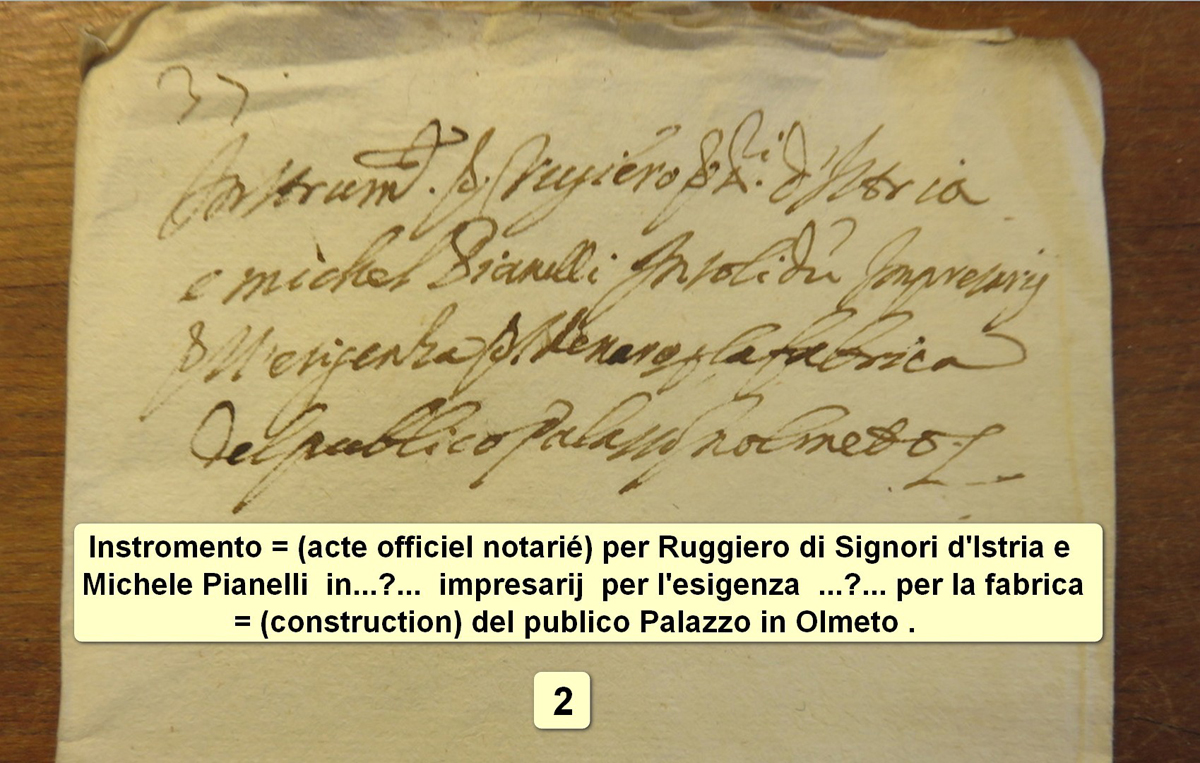 37
Instrumto. p. Rugiero SSri. d'Istria
e michel Pianelli Insolidũ Impresarij
p l'esigenza p. la fabrica
del publico Palasso in olmeto
Instromento = (acte officiel notarié) per Ruggiero di Signori d'Istria e
Michele Pianelli in...?... impresarij per l'esigenza ...?... per la fabrica
= (construction) del publico Palazzo in Olmeto .
2